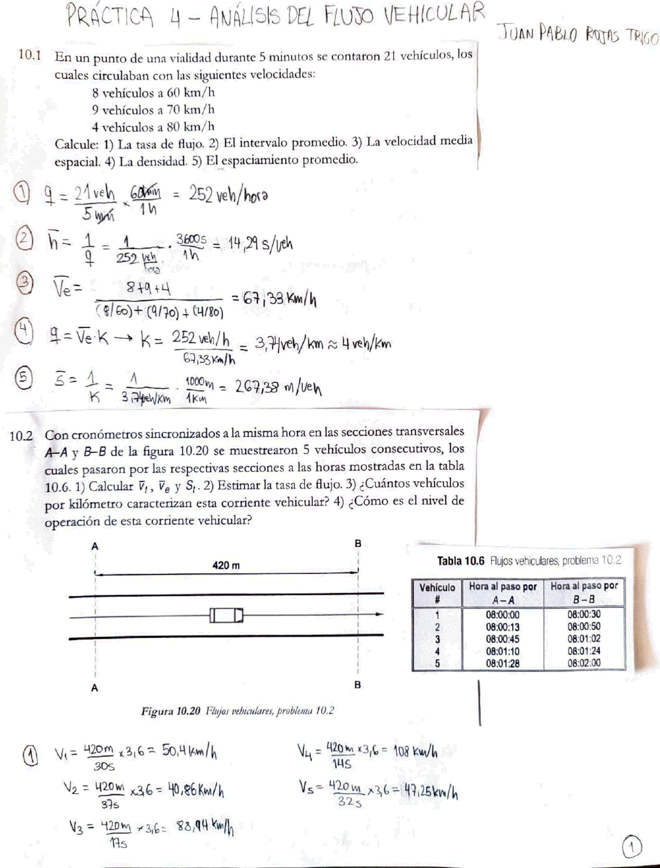 PRÁCTICA 4 – ANÁLISIS DEL FLUJO VEHICULAR
JUAN PABLO ROJAS TRIGO
10.1 En un punto de una vialidad durante 5 minutos se contaron 21 vehículos, los
cuales circulaban con las siguientes velocidades:
8 vehículos a 60 km/h
9 vehículos a 70 km/h
4 vehículos a 80 km/h
Calcule: 1) La tasa de flujo. 2) El intervalo promedio. 3) La velocidad media
espacial. 4) La densidad. 5) El espaciamiento promedio.
① q = 21 veh / 5 min × 60 min / 1h = 252 veh/hora
② h̅ = 1/q = 1 / 252 veh/hora · 3600s / 1h = 14,29 s/veh
③ V̅e = 8+9+4 / (8/60)+(9/70)+(4/80) = 67,38 Km/h
④ q = V̅e·K → K = 252 veh/h / 67,38 Km/h = 3,74 veh/km ≈ 4 veh/km
⑤ s̅ = 1/K = 1 / 3,74 veh/km · 1000m / 1km = 267,38 m/veh
10.2 Con cronómetros sincronizados a la misma hora en las secciones transversales
A–A y B–B de la figura 10.20 se muestrearon 5 vehículos consecutivos, los
cuales pasaron por las respectivas secciones a las horas mostradas en la tabla
10.6. 1) Calcular v̅t, v̅e y St. 2) Estimar la tasa de flujo. 3) ¿Cuántos vehículos
por kilómetro caracterizan esta corriente vehicular? 4) ¿Cómo es el nivel de
operación de esta corriente vehicular?
A B
420 m
A B
Figura 10.20 Flujos vehiculares, problema 10.2
Tabla 10.6 Flujos vehiculares, problema 10.2
Vehículo Hora al paso por Hora al paso por
# A–A B–B
1 08:00:00 08:00:30
2 08:00:13 08:00:50
3 08:00:45 08:01:02
4 08:01:10 08:01:24
5 08:01:28 08:02:00
① V1 = 420m / 30s × 3,6 = 50,4 km/h
V2 = 420m / 37s × 3,6 = 40,86 Km/h
V3 = 420m / 17s × 3,6 = 88,94 Km/h
V4 = 420m / 14s × 3,6 = 108 Km/h
V5 = 420m / 32s × 3,6 = 47,25 km/h
①